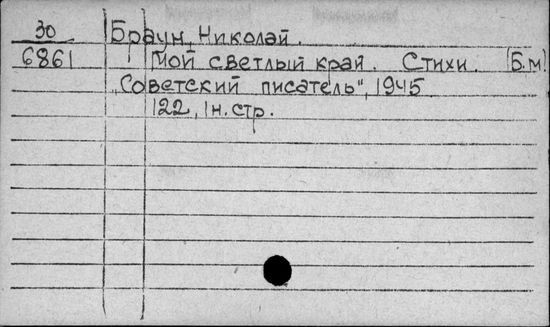 30 Браун, Николай.
6861 Мой светлый край. Стихи. (Б.м.)
„Советский писатель", 1945
122, 1 н. стр.